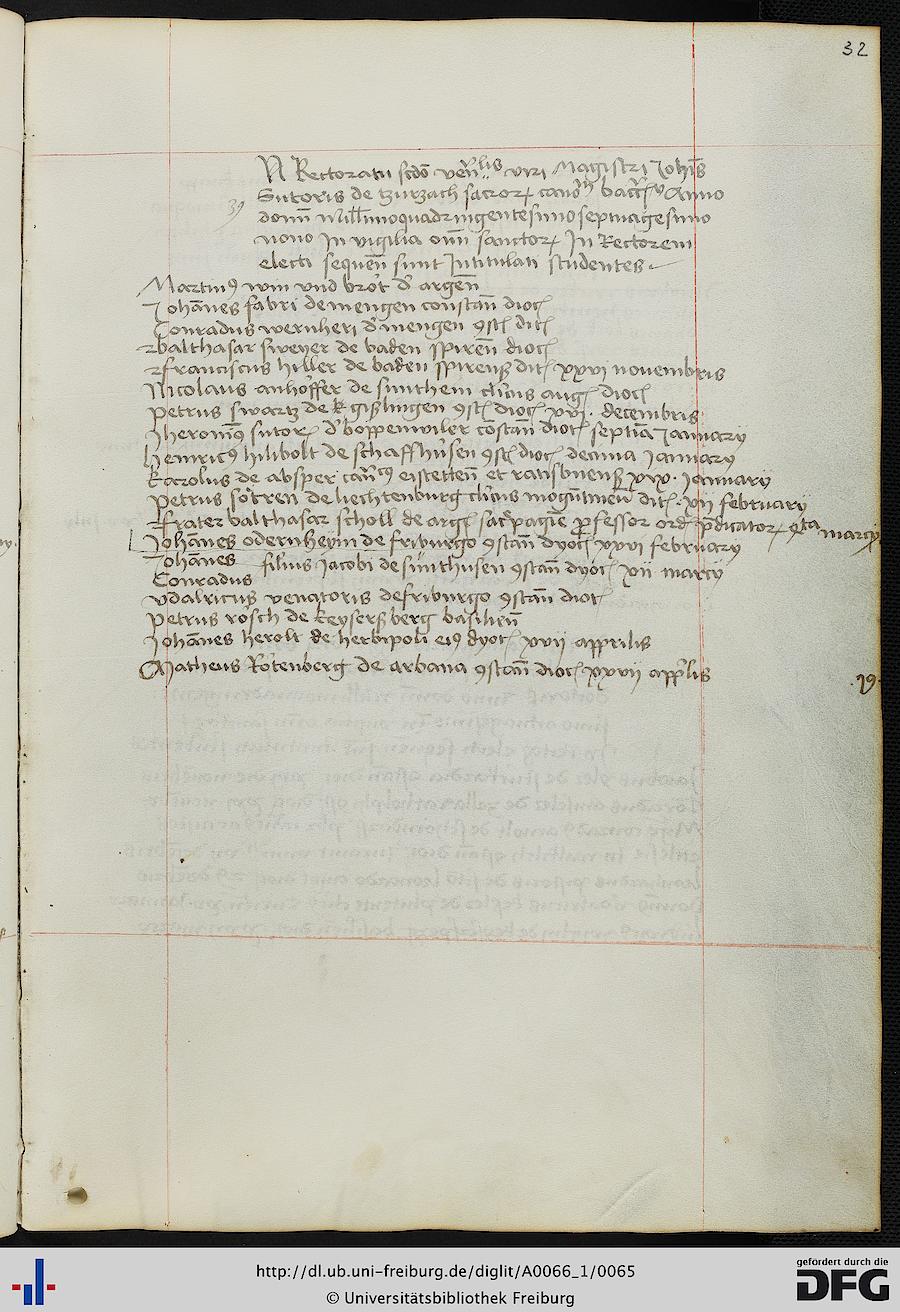 32
N Rectoratu scdo ven'lis viri Magistri Joh'is
Sutoris de tzurzach sacror canon bacc Anno
39
domi Millimoquadringentesimoseptuagesimo
nono In vigilia oim sanctor In Rectorem
electi sequen sunt Intitulati studentes
Martinus win und brot d argen
Johanes fabri de mengen constan dioc
Conradus wernheri d mengen 9st dic
balthasar sweyer de baden spiren dioc
franciscus hiller de baden spirens dic xxvi novembris
Nicolaus anhoffer de sunthem clicus aug dioc
Petrus swartz de gißlingen 9st dioc xvi decembris
Jheronimus sutor d boppenwiler costan dioc septia January
henricus hilibolt de schaffhusen 9st dioc decima January
karolus de absper can'cus eistetten et ratisbonens xix January
Petrus de liechtenburg clicus mogutinen dic xii february
frater balthasar scholl de arg sac pagie pfessor ord pdicator qrta marcy
Johanes odernheym de friburgo 9stan dyoc xxvi february
Johanes
Conradus filius Jacobi de sunthusen 9stan dyoc xii marcy
vdalricus venatoris de friburgo 9stan dioc
petrus rosch de keysersberg basilien
Johanes herolt de herbipoli ei9 dyoc xvii apprilis
Matheus Rotenberg de arbana 9stan dioc xxvii app'lis
19.
http://dl.ub.uni-freiburg.de/diglit/A0066_1/0065
© Universitätsbibliothek Freiburg
gefördert durch die
DFG